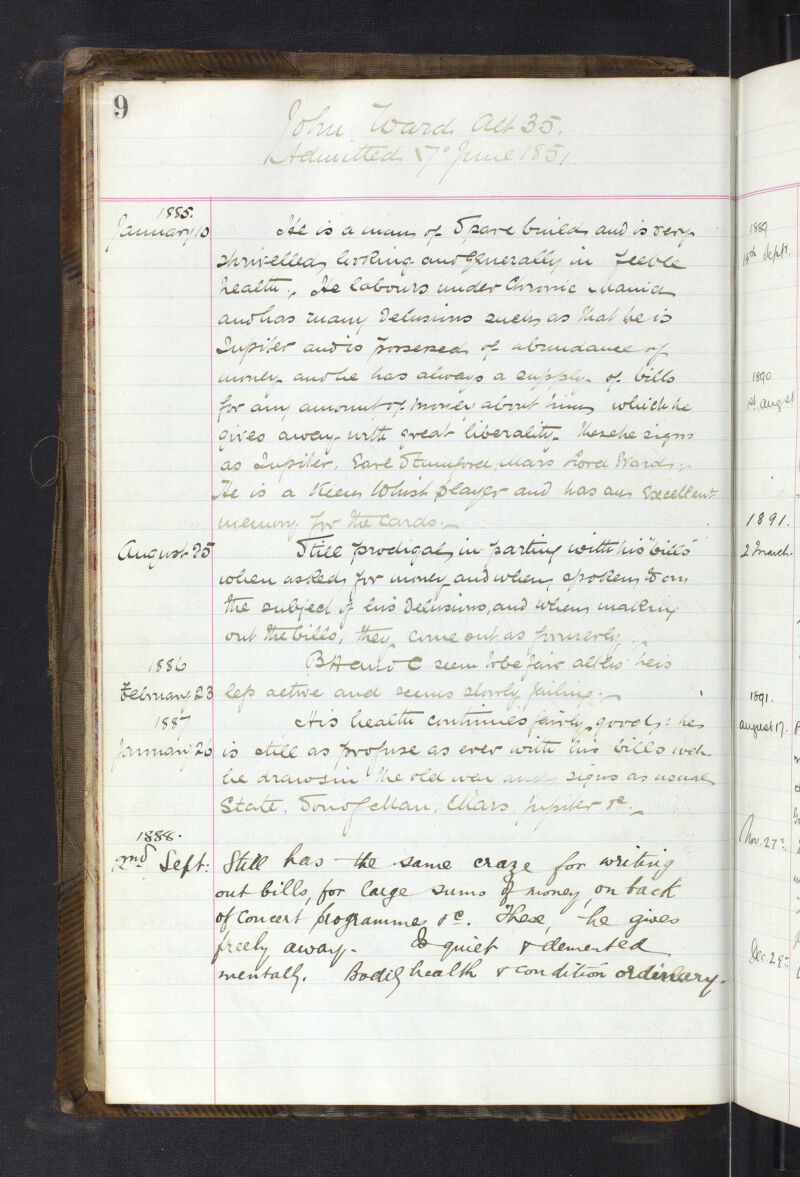 9
John Ward Aet 35.
Admitted 17° June 1851
1885.
January 10 He is a man of Spare build and is very
shrivelled looking and Generally in feeble
health. He labours under Chronic Mania
and has many Delusions such as that he is
Jupiter and is possessed of abundance of
money and he has always a supply of bills
for any amount of money about him which he
gives away with great liberality. These he signs
as Jupiter, Earl Stamford, Mars Lord Ward.
He is a Keen Whist player and has an Excellent
memory for the Cards.
August 25 Still prodigal in parting with his "bills"
when asked for money and when spoken to on
the subject of his Delusions, and when making
out the bills, they come out as formerly.
1886
February 23 B H and C seem to be fair altho' he is
less active and seems slowly failing.
1887
January 26 His health continues fairly good: he
is still as profuse as ever with his bills wch
he draws in the old way and signs as usual
State, Son of Man, Mars, Jupiter &c.
1888.
2nd Sept: Still has the same craze for writing
out bills, for large sums of money, on back
of concert programmes &c. These, he gives
freely away. Is quiet & demented
mentally. Bodily health & condition ordinary.
1889
18th Sept.
1890
1st Augst
1891.
2 March.
1891.
August 17.
Nov. 27th
Dec. 29th